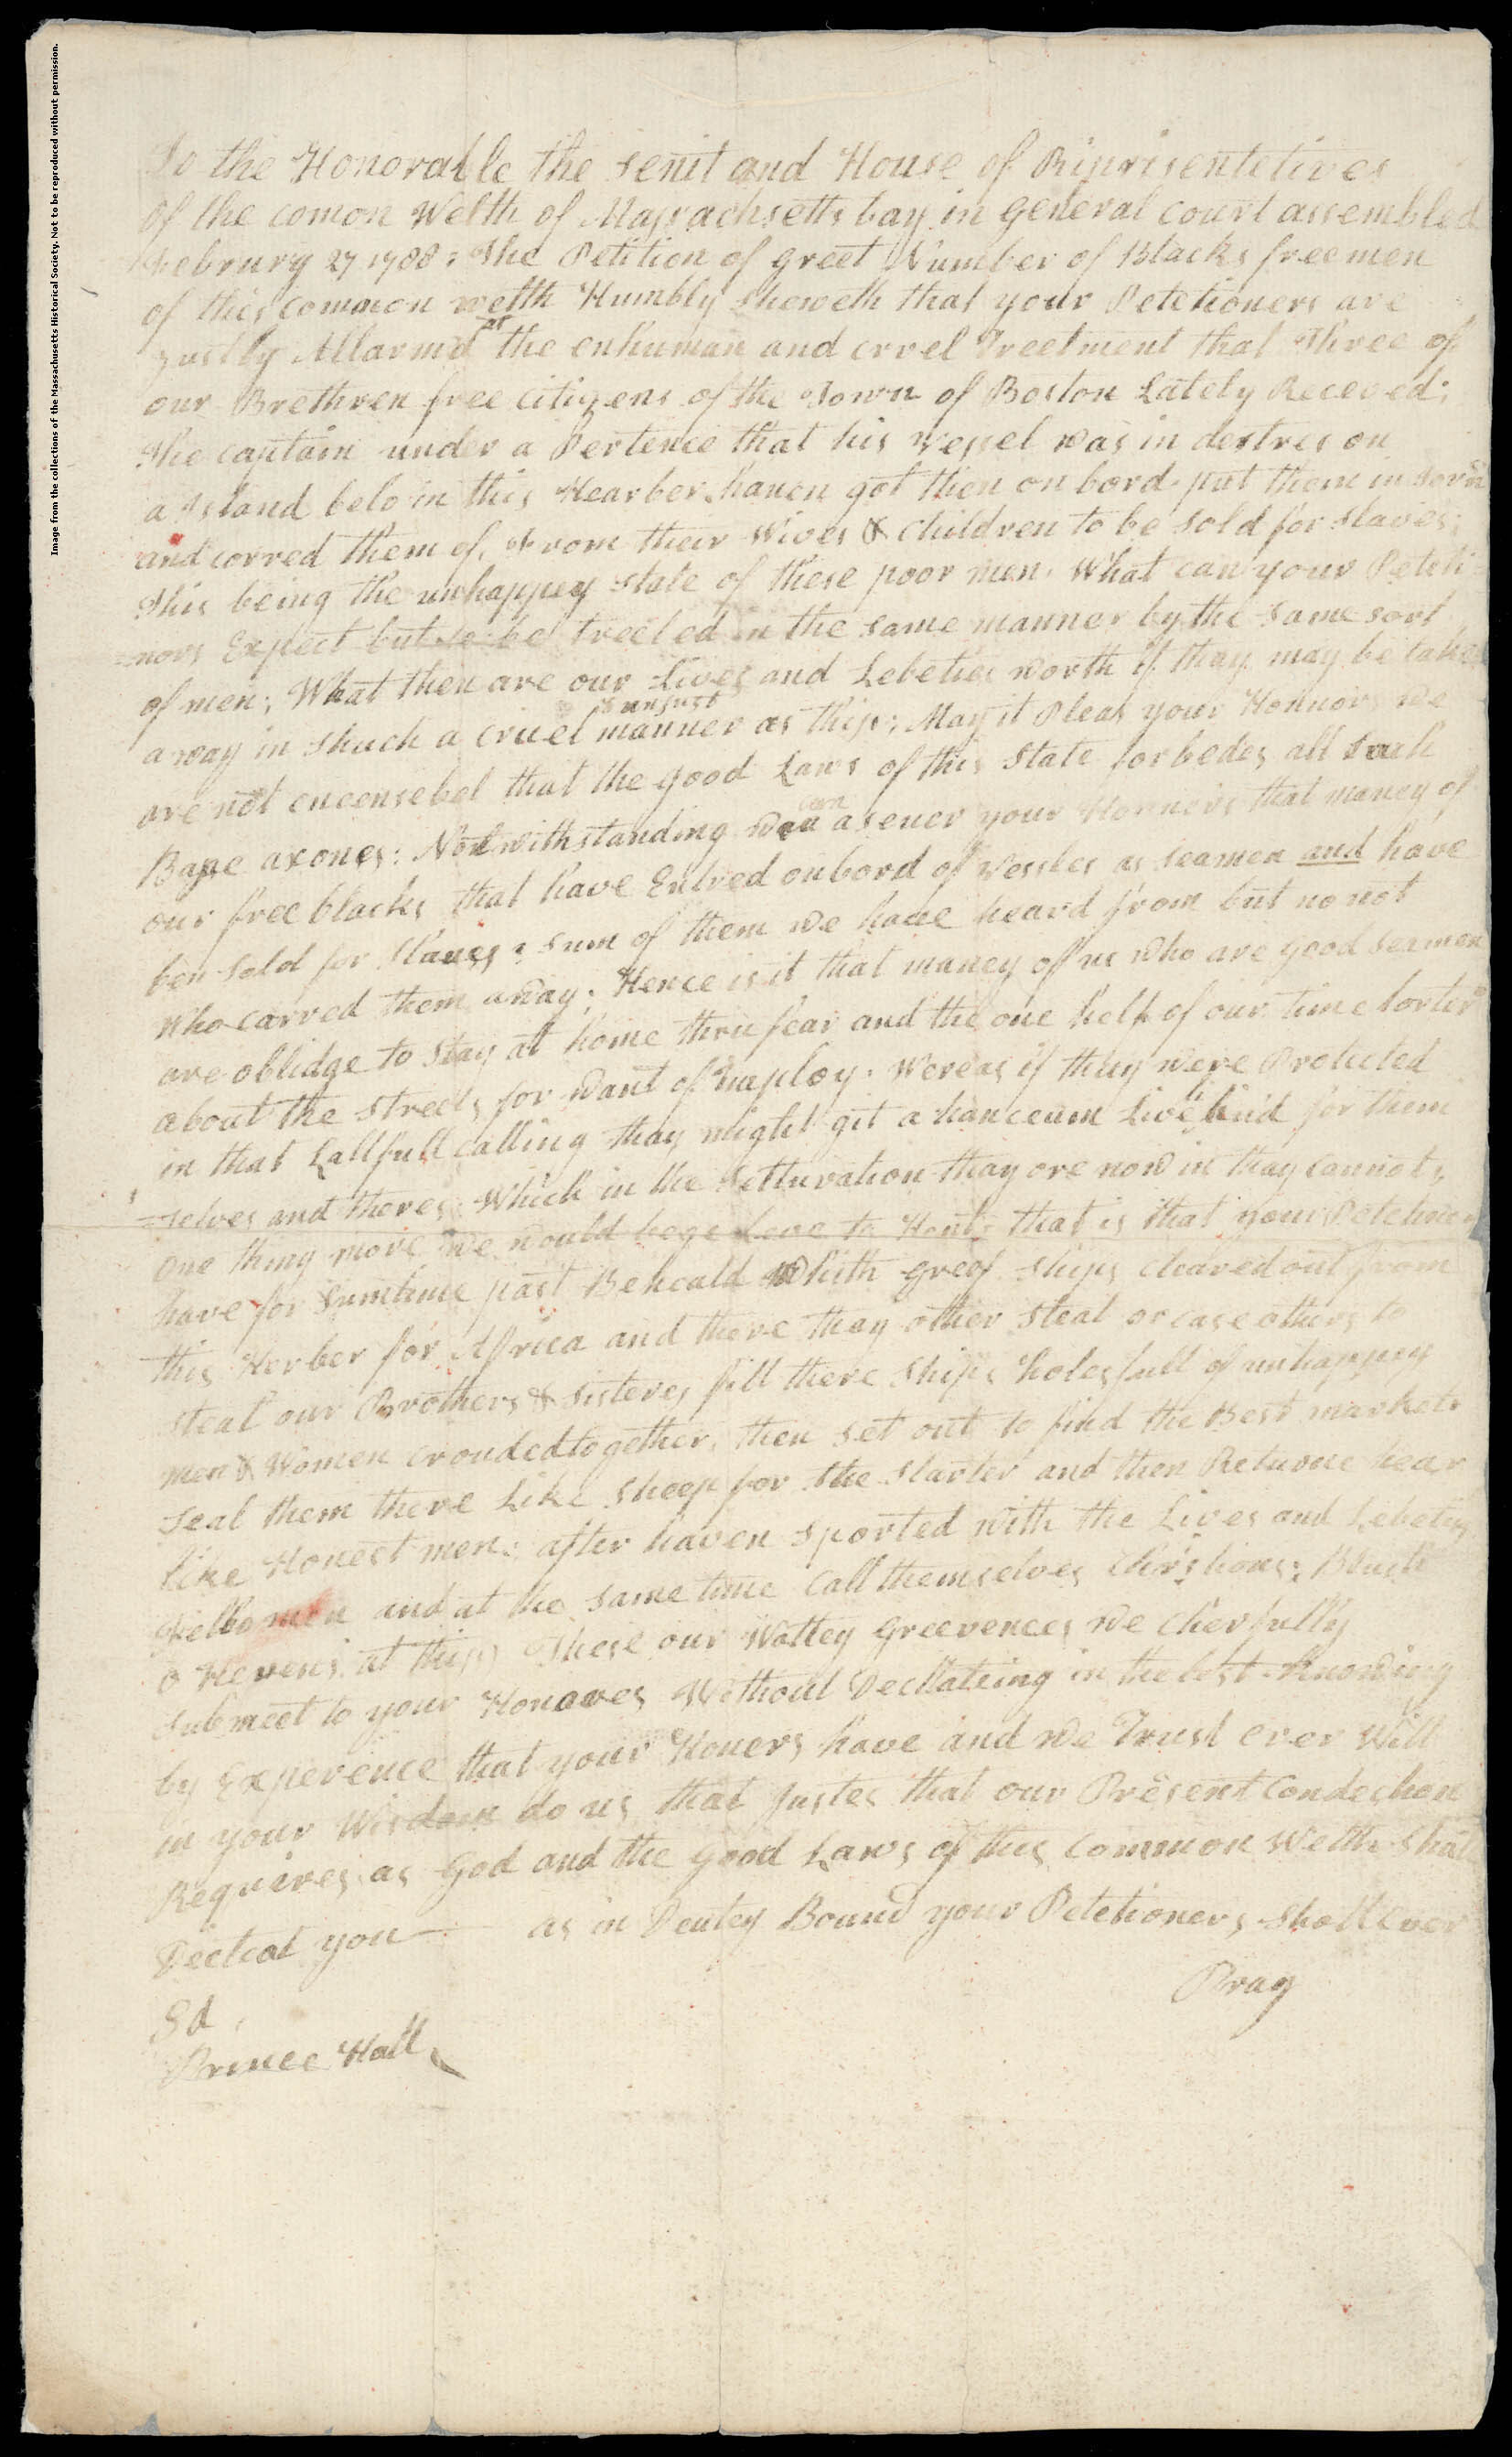 Image from the collections of the Massachusetts Historical Society. Not to be reproduced without permission.
To the Honorable the Senit and House of Riprisentetives
of the comon Welth of Massachsetts bay in general court assembled
Februry 27 1788: The Petition of greet Number of Blacks freemen
of this common welth Humbly sheweth that your Petetioners are
justly Allarmd at the enhuman and cruel Treetment that Three of
our Brethren free citizens of the Town of Boston Lately Receved;
The captain under a Pertence that his vessel was in destres on
a Island belo in this Hearber haven got then on bord put them in
and corred them of, from their Wives & Children to be sold for slaves;
This being the unhappey state of these poor men What can your Peteti
=nors Expect but to be treeted in the same manner by the same sort
of men; What then are our Lives and Lebeties worth if thay may be taken
away in shuch a cruel & unjust manner as this; May it Pleas your Honnors we
are not encensebel that the good Laws of this State forbedes all such
Base axones: Notwithstanding we can aseuer your Honners that maney of
our free blacks that have Entred onbord of vessles as seamen and have
ben sold for Slaves & sum of them we have heard from but no not
who carred them away; Hence is it that maney of us who are good seamen
are oblidge to stay at home thru fear and the one help of our time lorter
about the streets for want of employ; wereas if thay were Protected
in that Lallfull calling thay might git a hanceum Livelihud for them
=selves and theres: Which in the setturation thay are now in thay cannot,
One thing more we would bege Leve to Hont, that is that your Petetiners
have for sumtime past Beheald whith greef ships cleared out from
this Herber for Africa and there thay other steal or case others to
steal our Brothers & sisters fill there ships holes full of unhappey
men & Women crouded together, then set out to find the Best markets
seal them there Like sheep for the slarter and then Returne hear
like Honest men; after haven sported with the Lives and Lebeties
fello men and at the same time call themselves Christions; Blush
o Hevens at this, These our Wattey greevences we cherfully
submeet to your Honores Without Decttateing in the lest knowing
by Experence that your Honers have and we Trust ever Will
in your Wisdom do us that Justes that our Present Condechon
Requires as God and the good Laws of this Common Welth shall
Decttat you— as in Deutey Bound your Petetioners shall ever
Pray
Sd.
Prince Hall